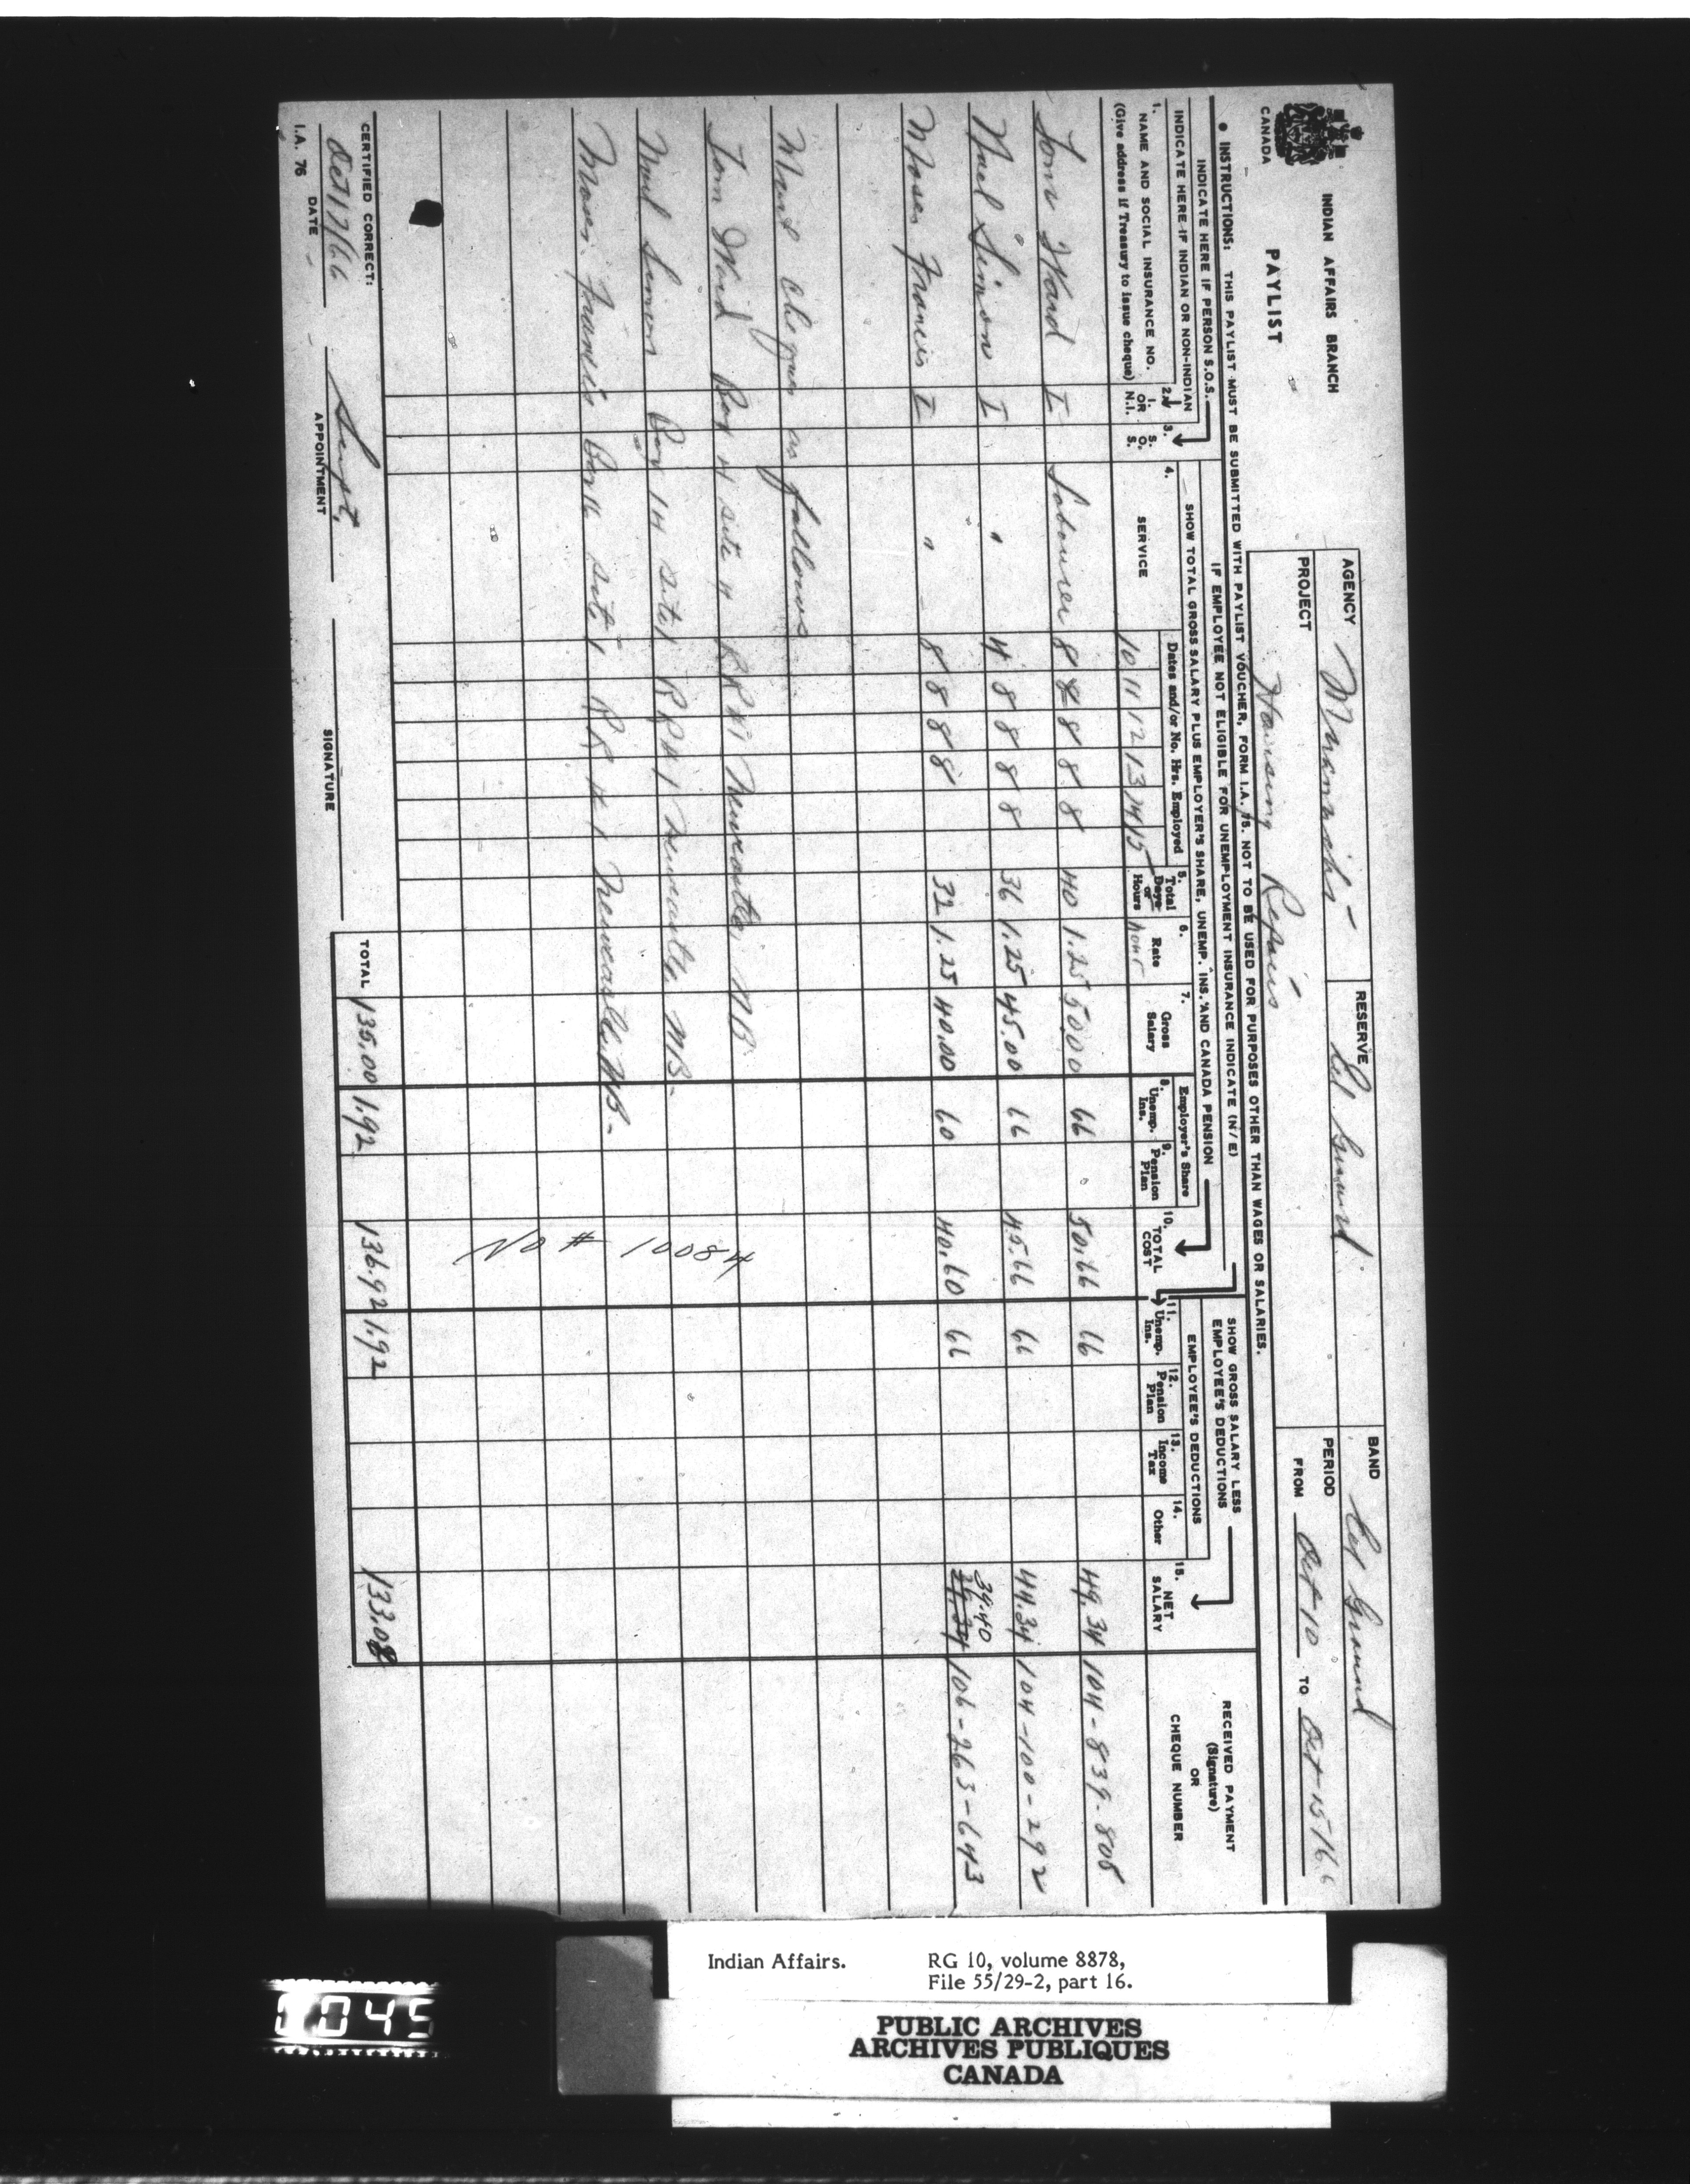 INDIAN AFFAIRS BRANCH
CANADA
PAYLIST
AGENCY Miramichi
RESERVE Eel Ground
BAND Eel Ground
PROJECT Housing Repairs
PERIOD
FROM Oct 10 TO Oct 15/66
• INSTRUCTIONS: THIS PAYLIST MUST BE SUBMITTED WITH PAYLIST VOUCHER, FORM I.A. 75. NOT TO BE USED FOR PURPOSES OTHER THAN WAGES OR SALARIES.
INDICATE HERE IF PERSON S.O.S.
IF EMPLOYEE NOT ELIGIBLE FOR UNEMPLOYMENT INSURANCE INDICATE (N/E)
INDICATE HERE IF INDIAN OR NON-INDIAN
SHOW TOTAL GROSS SALARY PLUS EMPLOYER'S SHARE, UNEMP. INS. AND CANADA PENSION
SHOW GROSS SALARY LESS EMPLOYEE'S DEDUCTIONS
RECEIVED PAYMENT (Signature) OR CHEQUE NUMBER
1. NAME AND SOCIAL INSURANCE NO. (Give address if Treasury to issue cheque)
2. I. OR N.I.
3. S. O. S.
4. SERVICE
Dates and/or No. Hrs. Employed
10 11 12 13 14 15
5. Total Days or Hours
6. Rate hour
7. Gross Salary
Employer's Share
8. Unemp. Ins.
9. Pension Plan
10. TOTAL COST
EMPLOYEE'S DEDUCTIONS
11. Unemp. Ins.
12. Pension Plan
13. Income Tax
14. Other
15. NET SALARY
Tom Ward I Labourer 8 8 8 8 8 40 1.25 50.00 66 50.66 66 49.34 104-839-808
Noel Simon I " 4 8 8 8 8 36 1.25 45.00 66 45.66 66 44.34 104-100-292
Moses Francis I " 8 8 8 8 32 1.25 40.00 60 40.60 66 39.40 39.34 106-263-643
Mail cheques as follows
Tom Ward Box 4 site 4 RR #1 Newcastle, NB
Noel Simon Box 14 site 1 RR #1 Newcastle, NB-
Moses Francis Box 16 site 1 RR #1 Newcastle, NB-
No # 10084
TOTAL 135.00 1.92 136.92 1.92 133.08
CERTIFIED CORRECT:
Oct 17/66
DATE
Supt.
APPOINTMENT
SIGNATURE
I.A. 76
Indian Affairs. RG 10, volume 8878,
File 55/29-2, part 16.
PUBLIC ARCHIVES
ARCHIVES PUBLIQUES
CANADA
1045